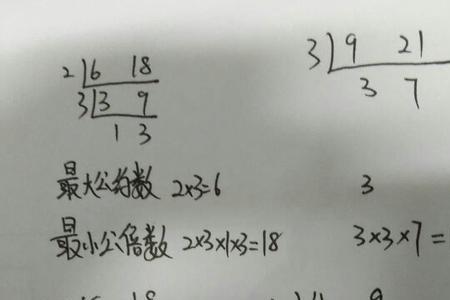 2 6 18 3 9 21
3 3 9 3 7
1 3
最大公约数 2×3=6 3
最小公倍数 2×3×1×3=18 3×3×7=
18 9